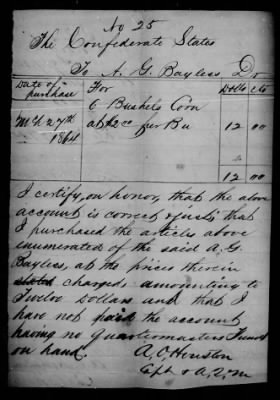 No 25
The Confederate States
To A. G. Bayless Dr
Date of purchase For Dolls cts
6 Bushels Corn
Mch 27th at $2.00 per Bu 12 00
1864
12 00
I certify, on honor, that the above
account is correct & just; that
I purchased the articles above
enumerated of the said A. G.
Bayless, at the prices therein
charged amounting to
Twelve Dollars and that I
have not paid the account
having no Quartermasters Funds
on hand.
A. O. Houston
Capt & A.Q.M